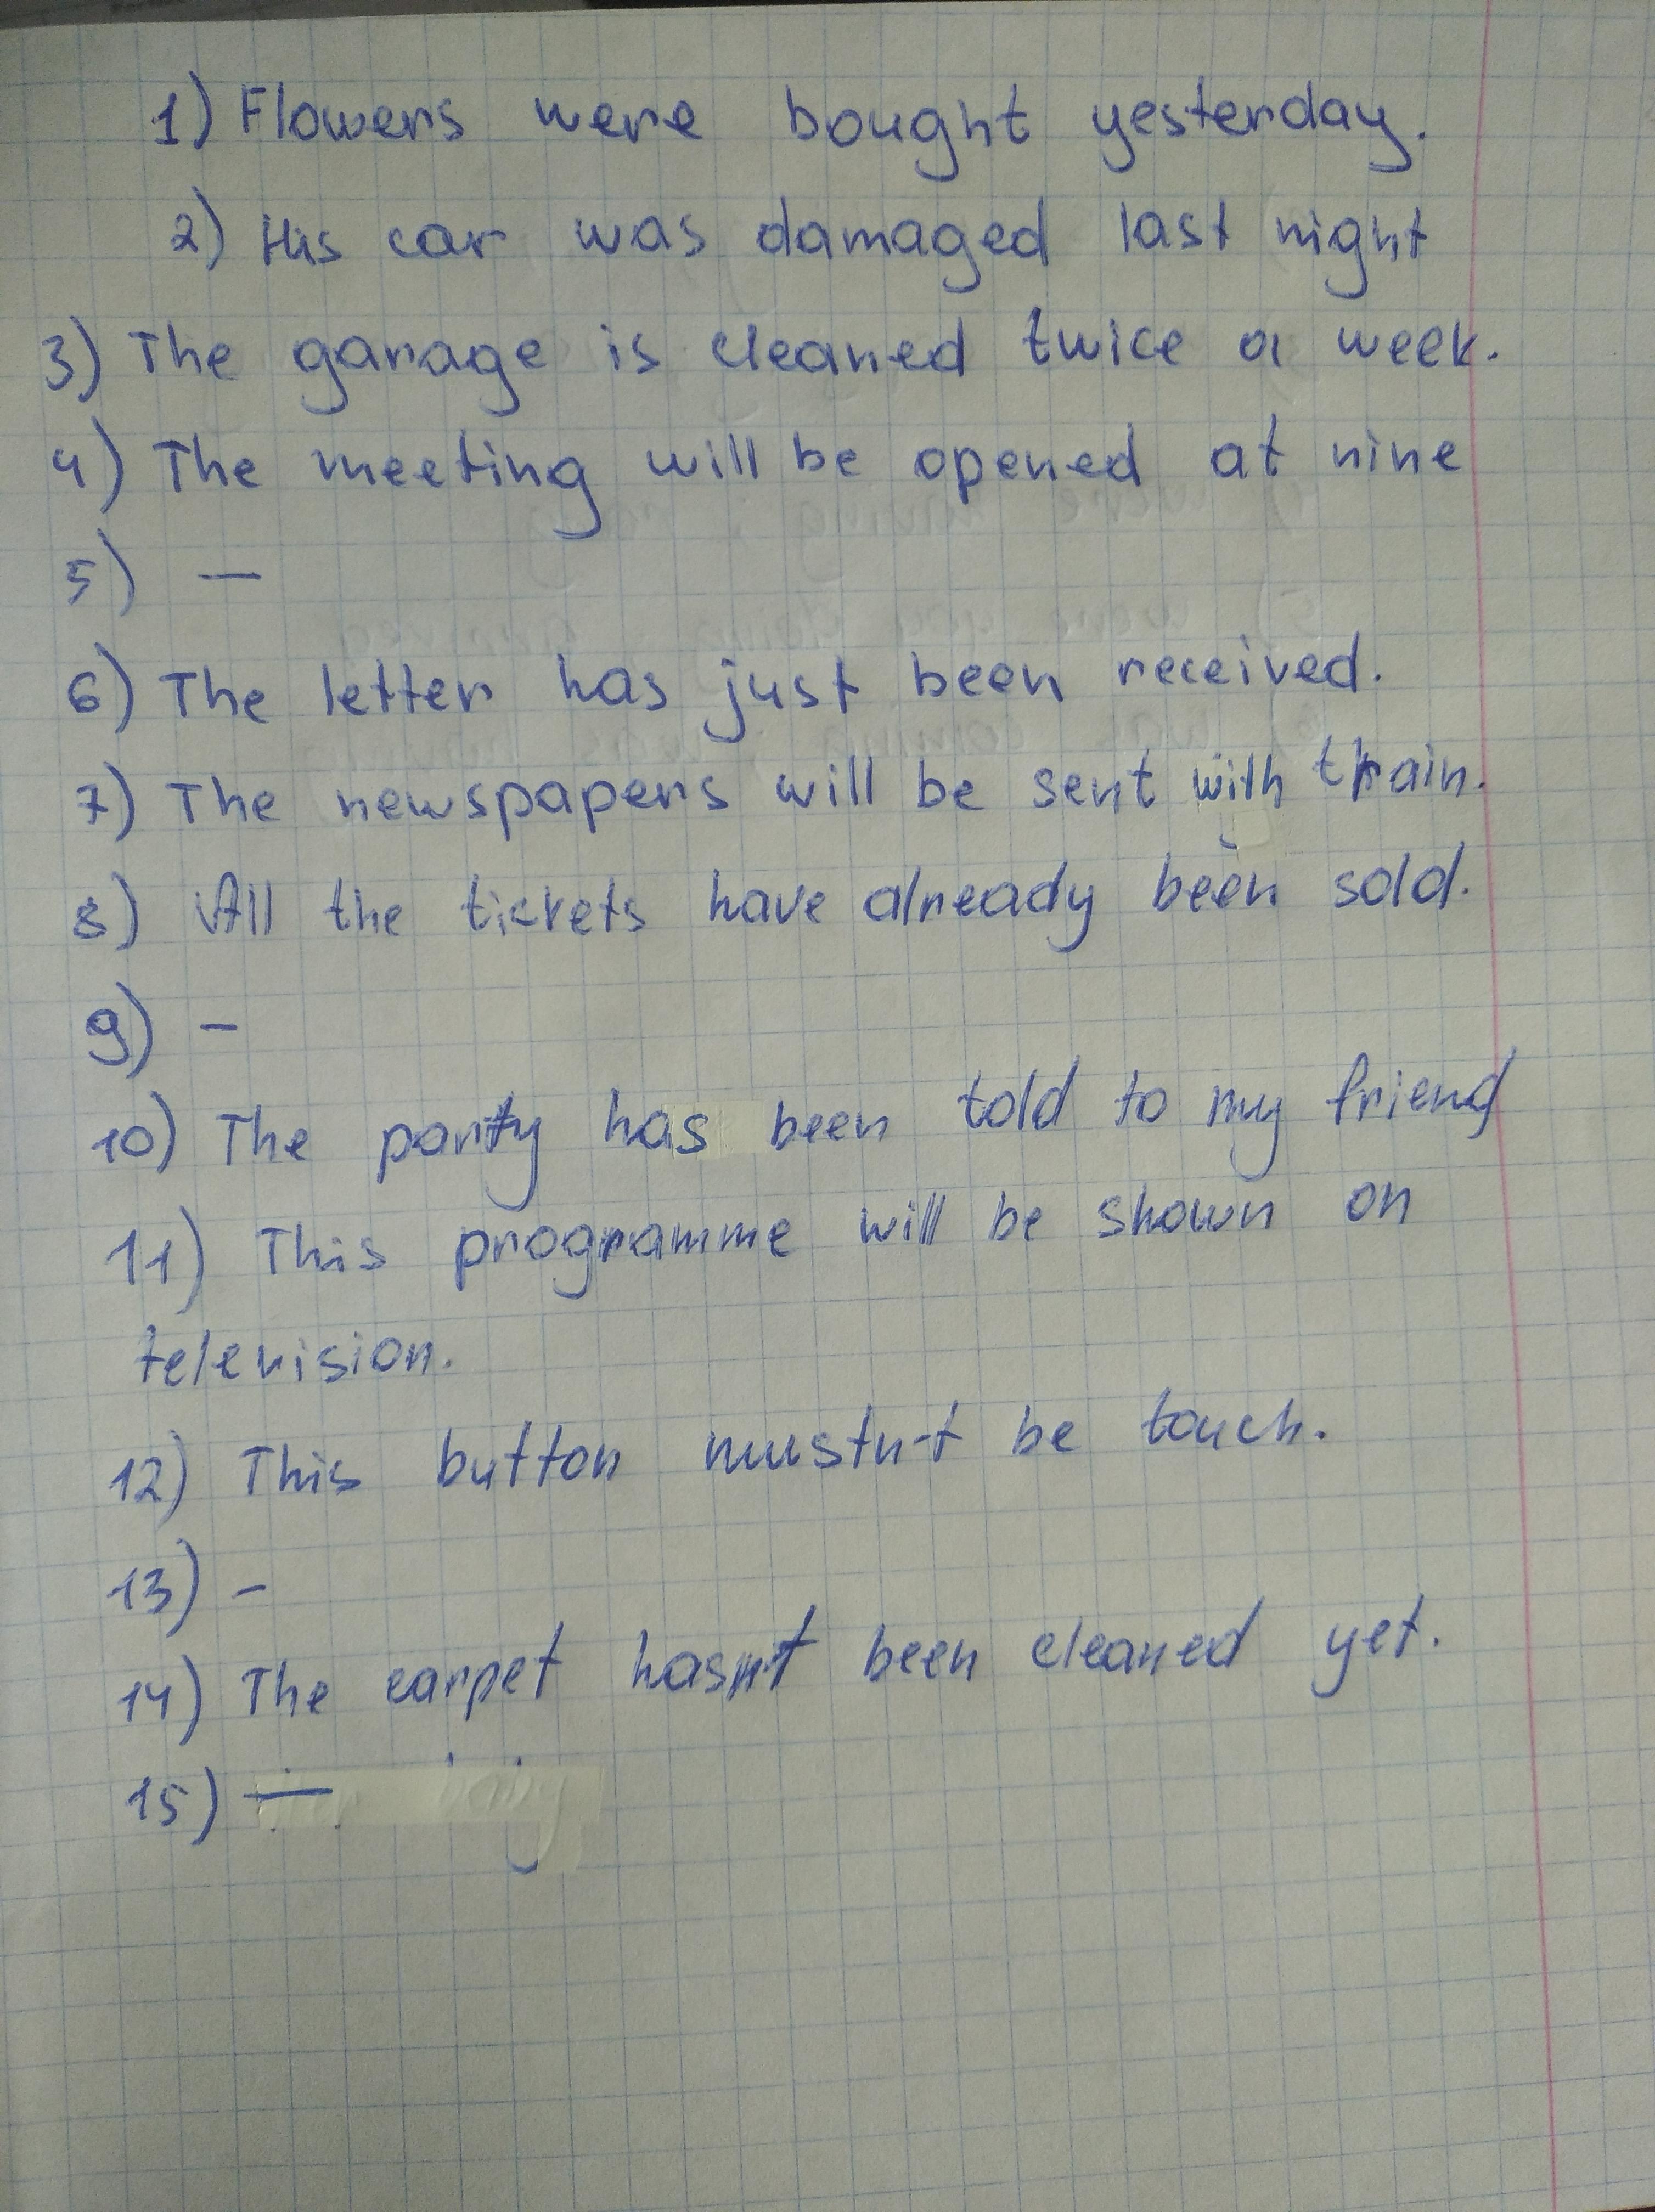 1) Flowers were bought yesterday.
2) His car was damaged last night
3) The garage is cleaned twice a week.
4) The meeting will be opened at nine
5) —
6) The letter has just been received.
7) The newspapers will be sent with train.
8) All the tickets have already been sold.
9) –
10) The party has been told to my friend
11) This programme will be shown on
television.
12) This button mustn't be touch.
13) –
14) The carpet hasn't been cleaned yet.
15) —